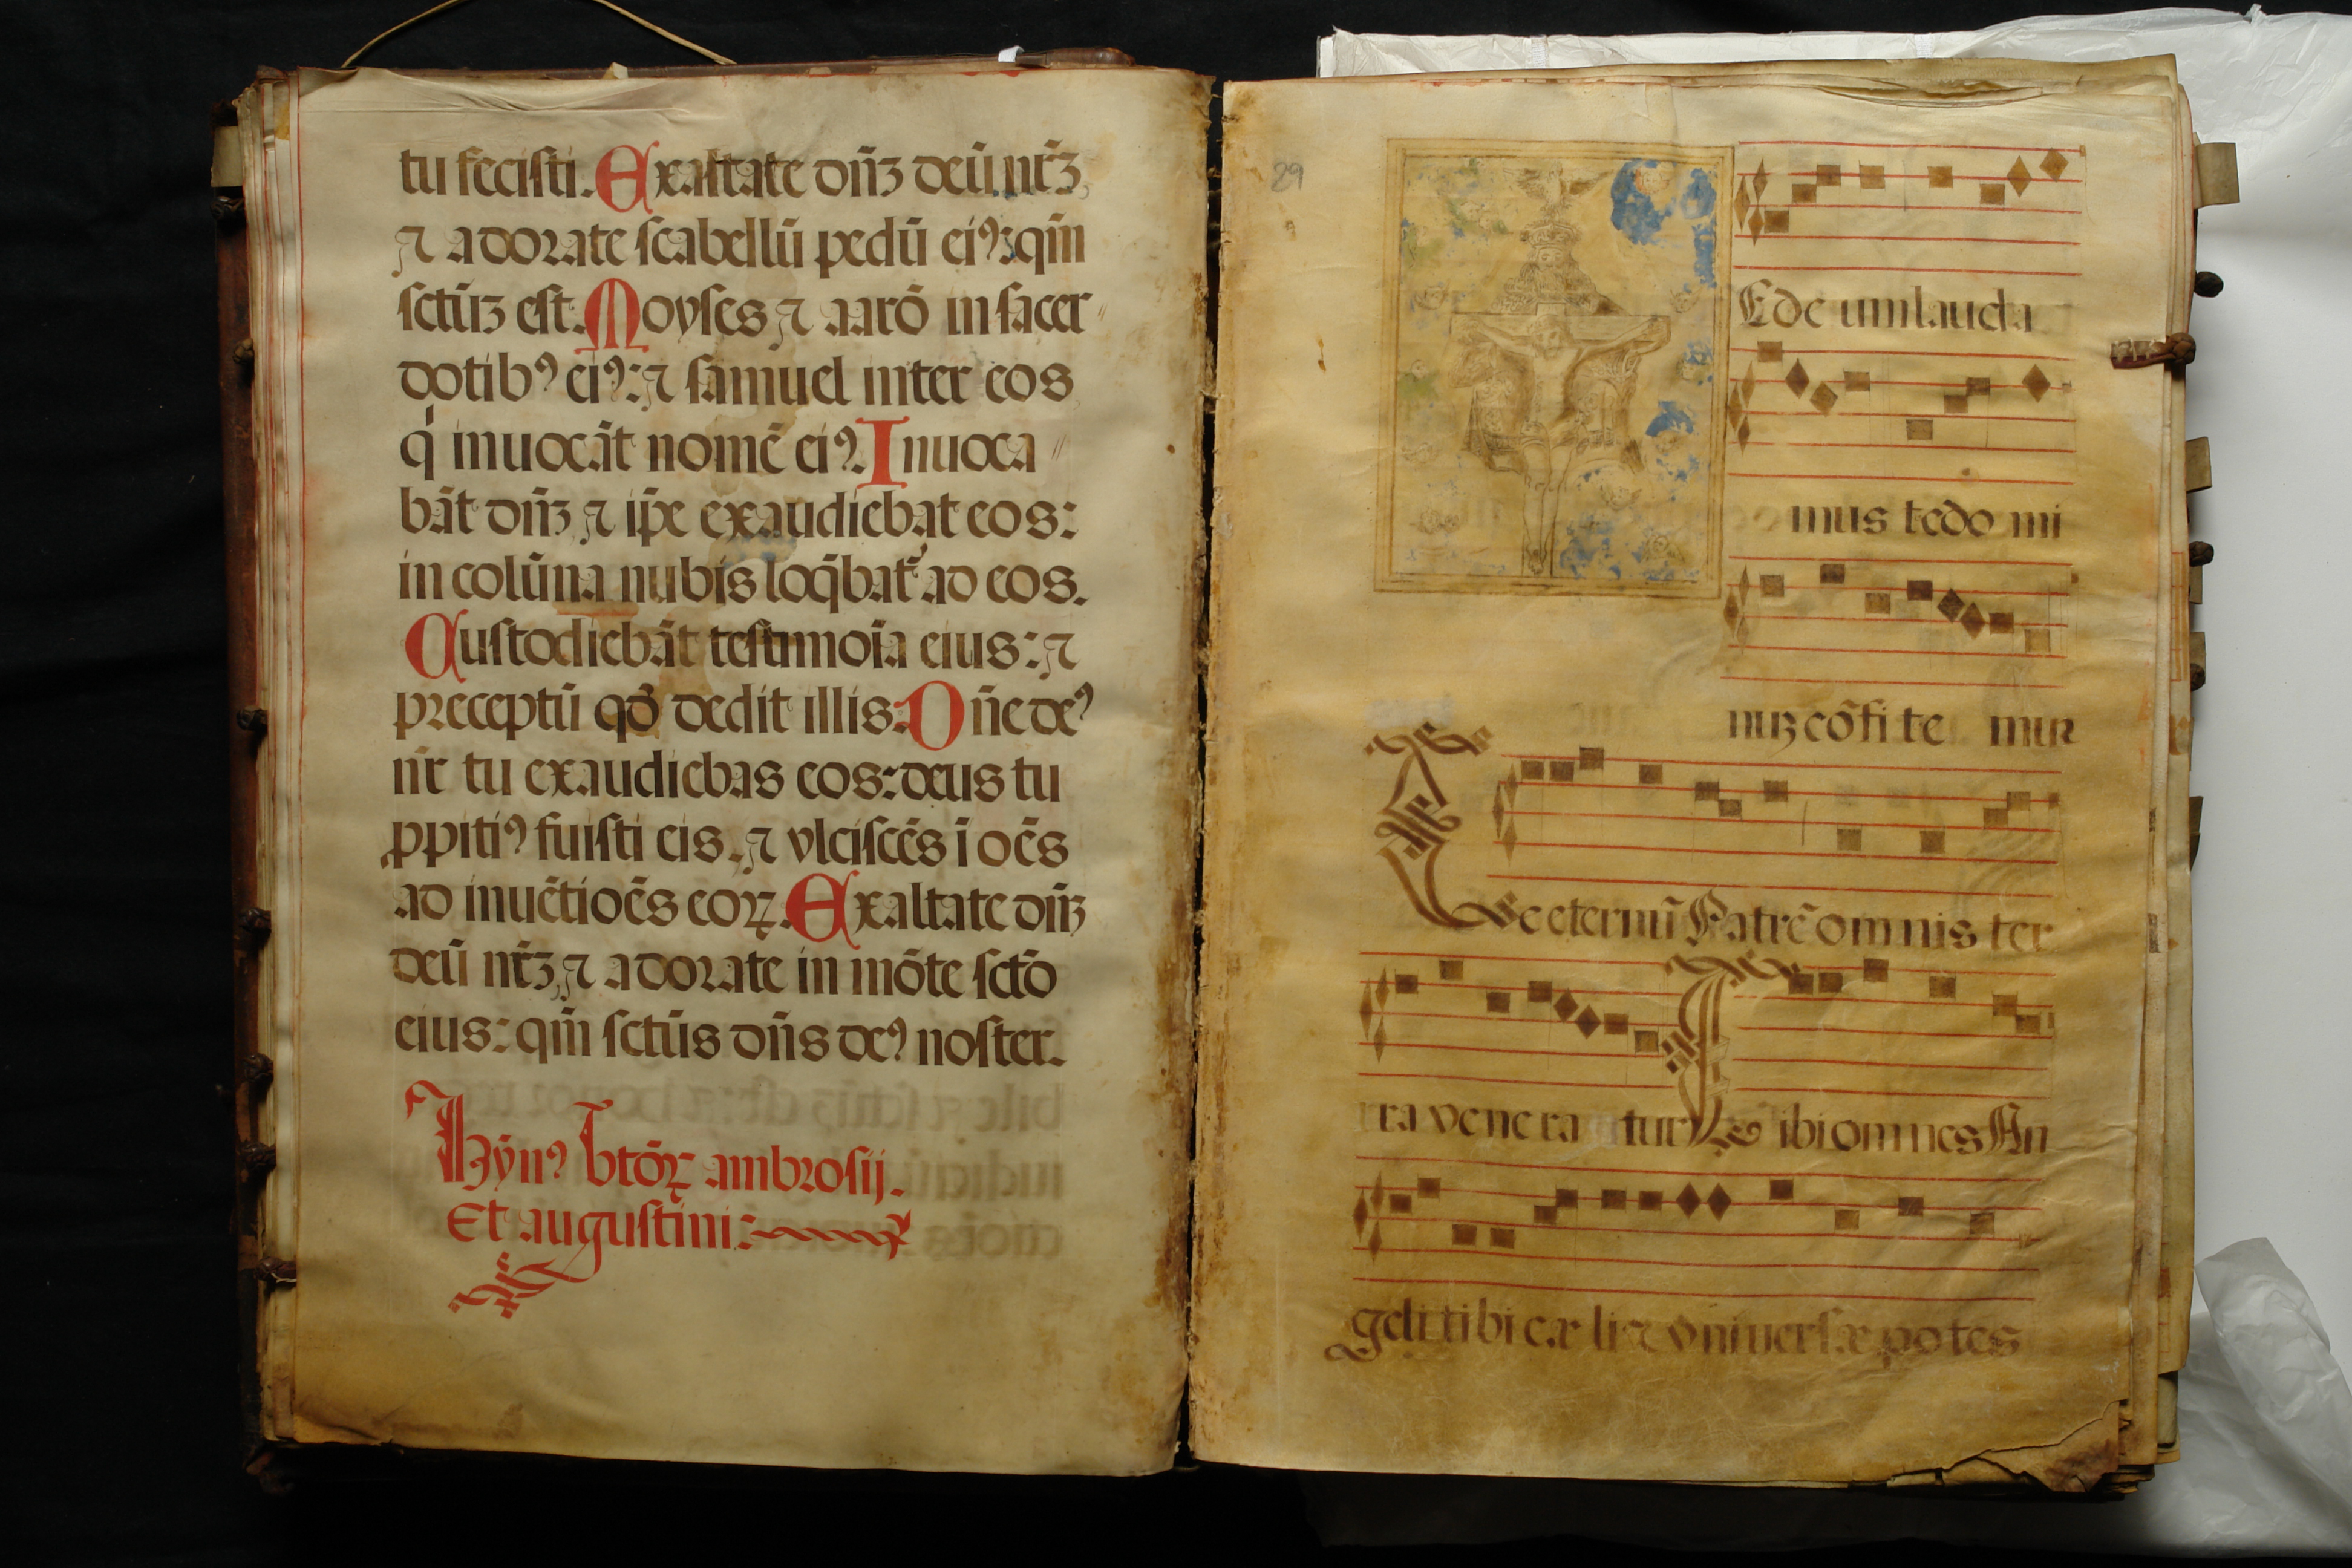 tu fecisti. Exaltate dn̄ꝫ deū nr̄ꝫ,
⁊ adorate scabellū pedū ei⁹: qm̄
sctū̄ꝫ est. Moyses ⁊ aarō in sacer
dotib⁹ ei⁹: ⁊ samuel inter eos
qͥ inuocāt nomē ei⁹. Inuoca
bāt dn̄ꝫ ⁊ ip̄e exaudiebat eos:
in colūna nubis loq̄bat᷑ ad eos.
Custodiebāt testimoīa eius: ⁊
preceptū qđ dedit illis. Dn̄e de⁹
nr̄ tu exaudiebas eos: deus tu
ꝓpiti⁹ fuisti eis. ⁊ vlciscēs ī oēs
ad inuētioēs eoꝝ. Exaltate dn̄ꝫ
deū nr̄ꝫ, ⁊ adorate in mōte sctō
eius: qm̄ sctūs dn̄s de⁹ noster.
Hȳn⁹ btōꝝ ambrosij.
Et augustini:
29
E de um lauda
mus te do mi
nuꝫ cōfi te mur
Te eternū Patrē omnis ter
ra vene ra tur Tibi omnes An
geli tibi cæ li ⁊ vniuersæ potes